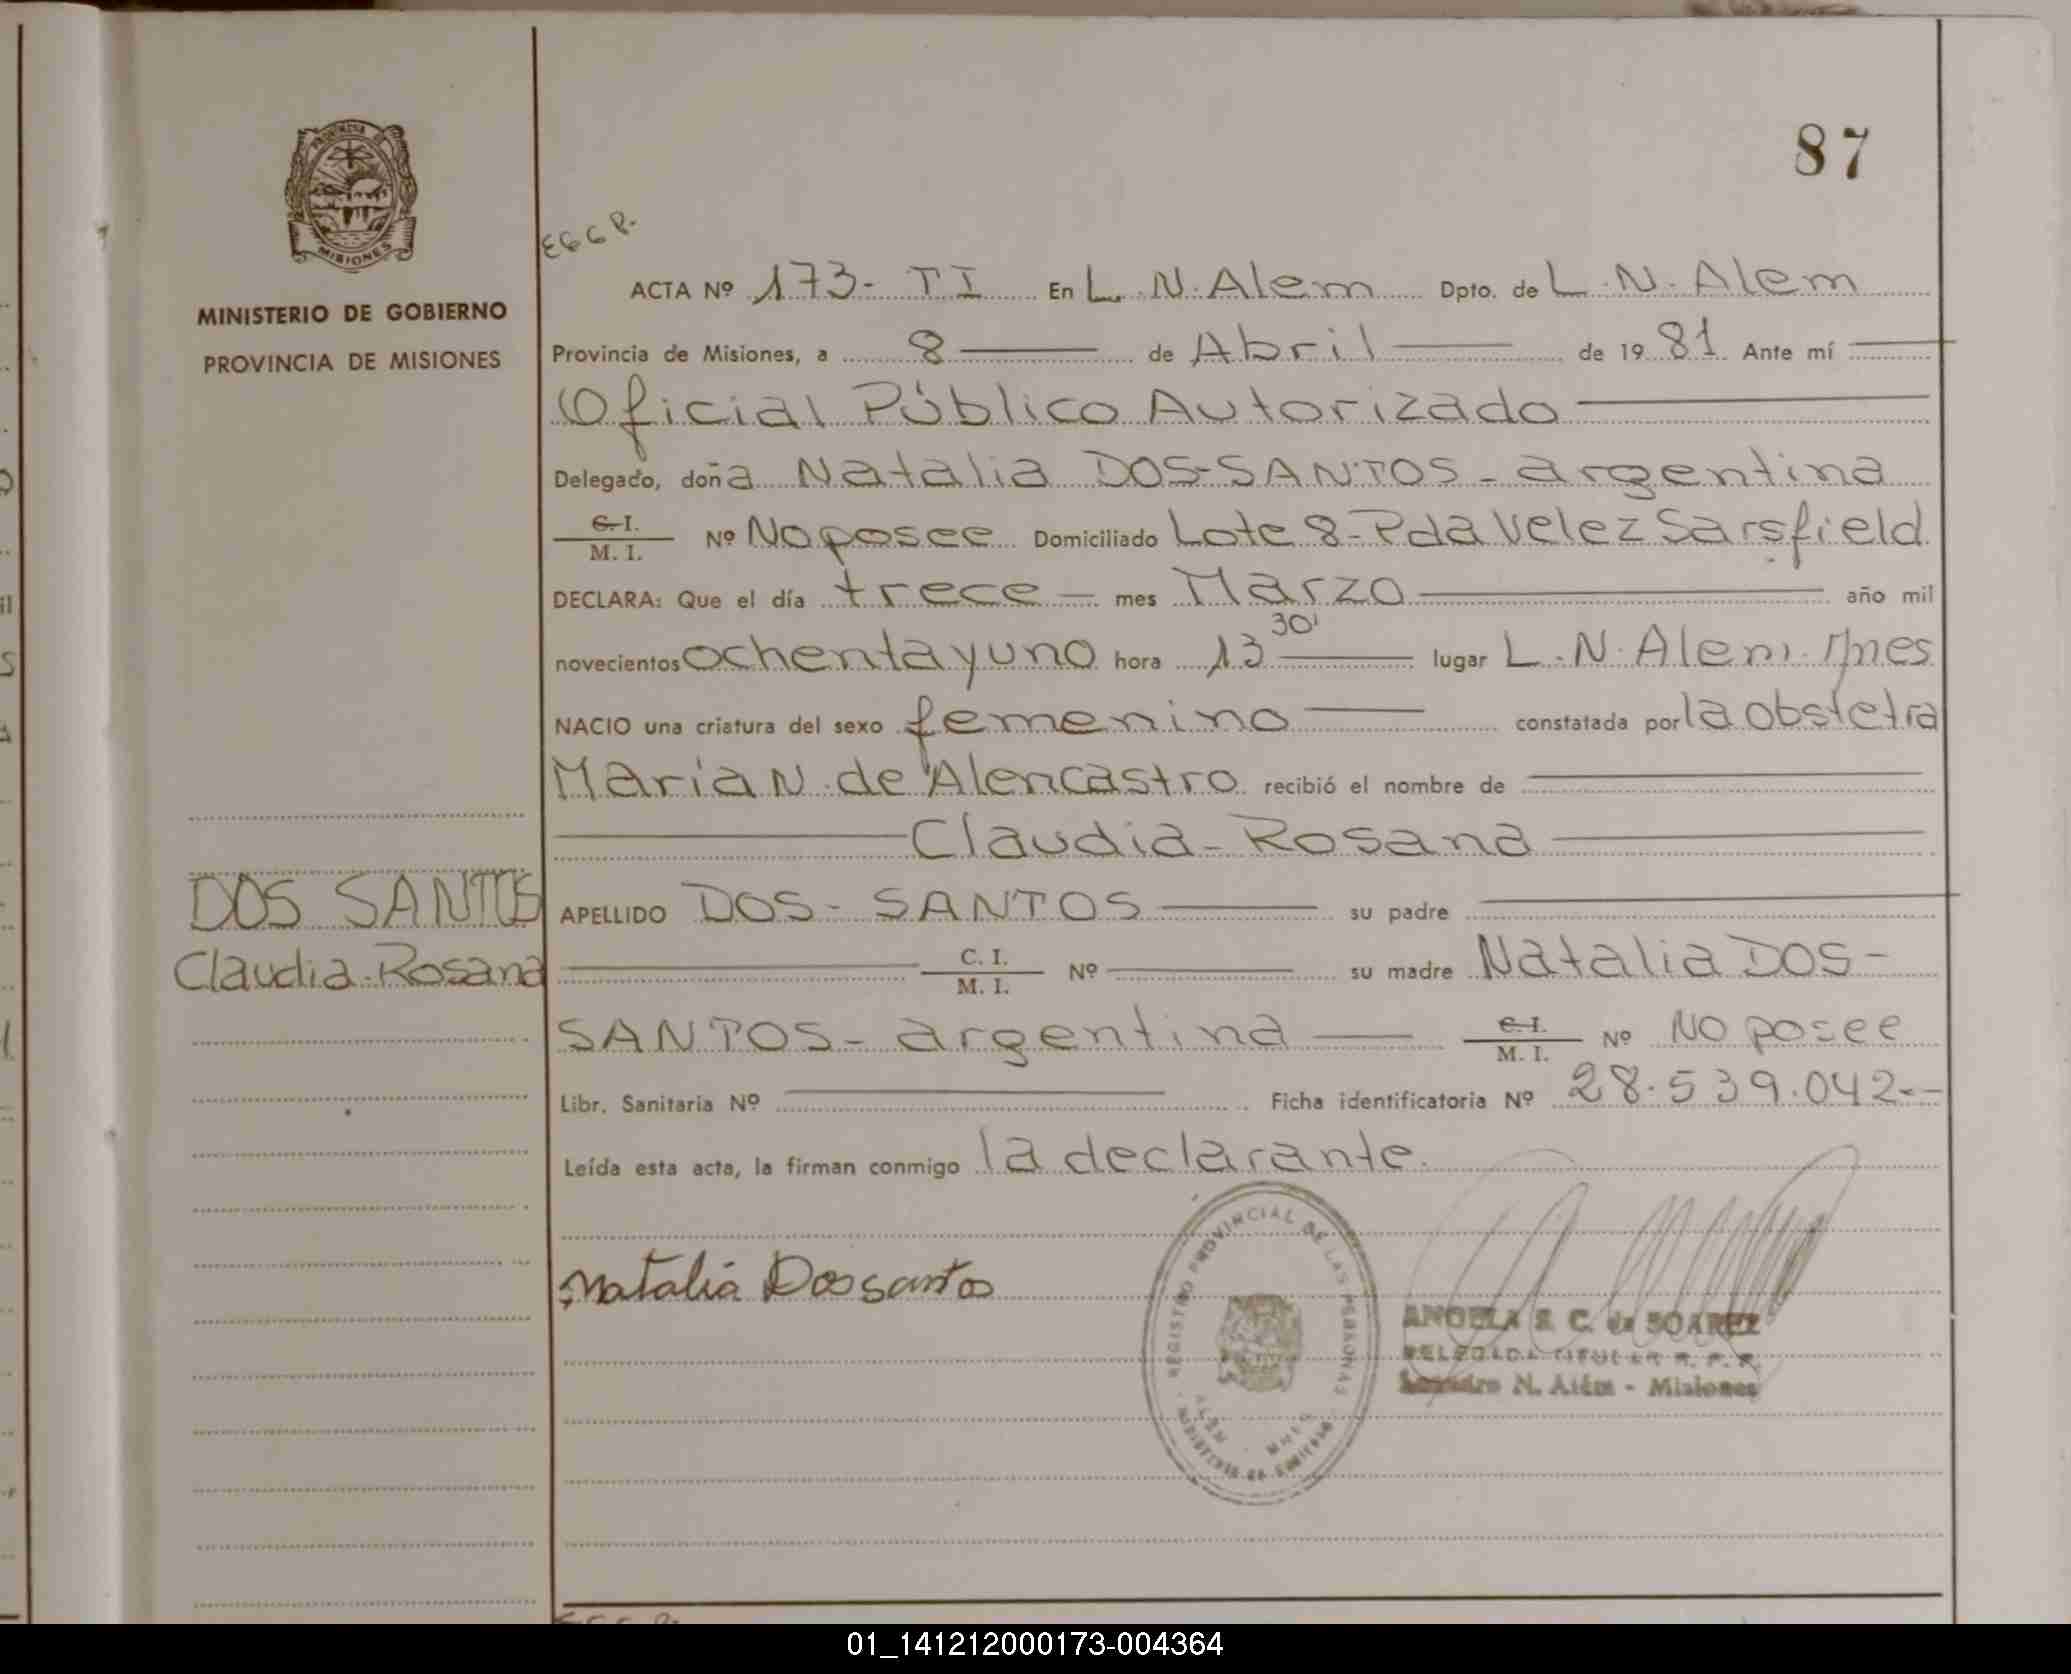 87
PROVINCIA DE
MISIONES
MINISTERIO DE GOBIERNO
PROVINCIA DE MISIONES
DOS SANTOS
Claudia-Rosana
EGGP.
ACTA Nº 173- TI En L.N.Alem Dpto. de L.N.Alem
Provincia de Misiones, a 8 de Abril de 1981 Ante mí
Oficial Público Autorizado
Delegado, doña Natalia DOS-SANTOS - argentina
C.I. M.I. Nº No posee Domiciliado Lote 8-Pda Velez Sarsfield
DECLARA: Que el día trece mes Marzo año mil
novecientos ochentayuno hora 13 30' lugar L.N.Alem. Mnes
NACIO una criatura del sexo femenino constatada por la obstetra
María N. de Alencastro recibió el nombre de
Claudia-Rosana
APELLIDO DOS-SANTOS su padre
C.I. M.I. Nº su madre Natalia DOS-
SANTOS- argentina C.I. M.I. Nº No posee
Libr. Sanitaria Nº Ficha identificatoria Nº 28.539.042.-
Leída esta acta, la firman conmigo la declarante.
Natalia Dossantos
REGISTRO PROVINCIAL DE LAS PERSONAS
MINISTERIO DE GOBIERNO
ANGELA S. C. de SOAREZ
DELEGADA TITULAR R. P. P.
Leandro N. Além - Misiones
01_141212000173-004364